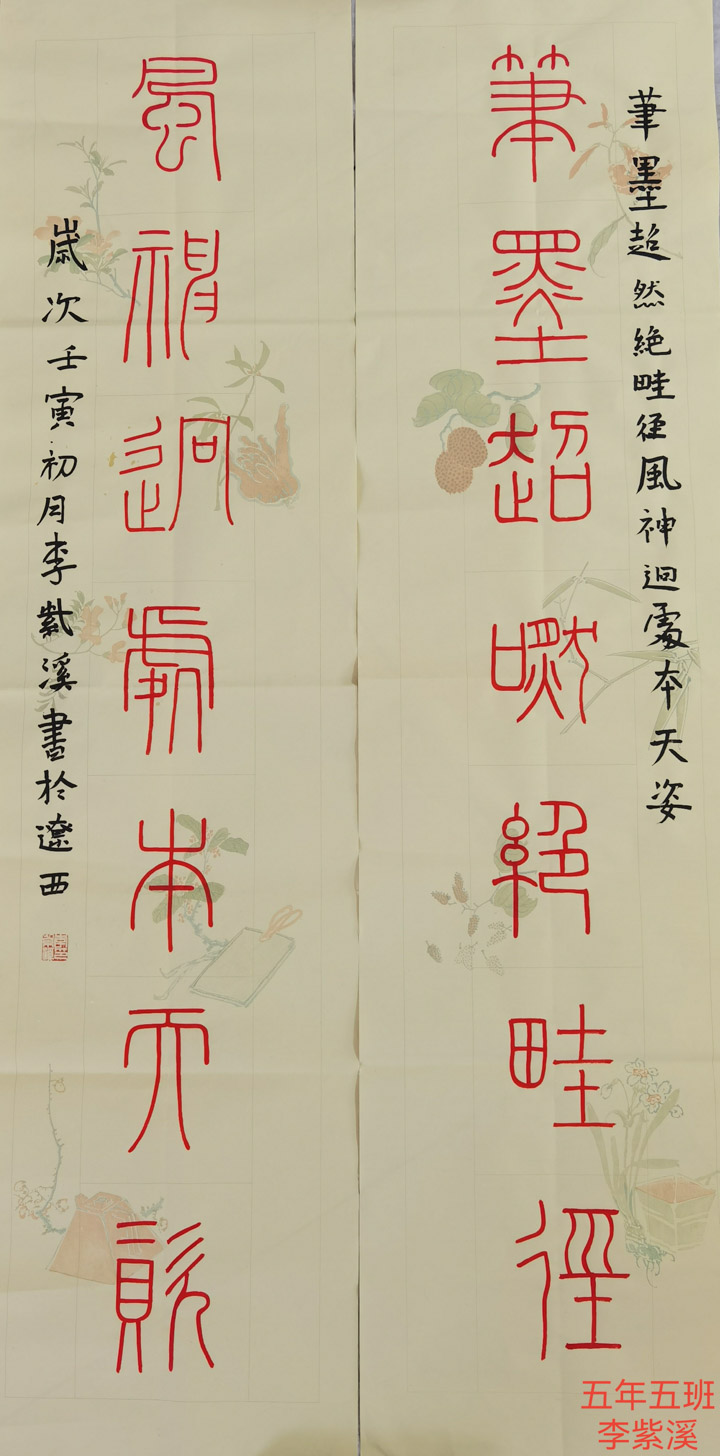 筆墨超然絶畦径風神迥處本天姿
筆墨超然絶畦徑
風神迥處本天資
歲次壬寅初月李紫溪書於遼西
五年五班
李紫溪